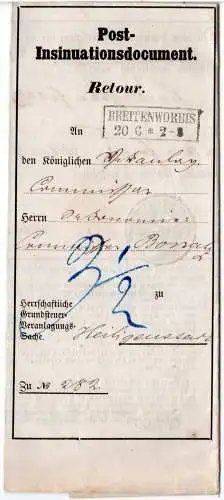 Post-
Insinuationsdocument.
Retour.
BREITENWORBIS
20 6 * 2-3
An
den Königlichen
Commissar
Herrn Oekonomie-
Commissar
3½
zu
Herrschaftliche
Grundsteuer-
Veranlagungs-
Sache.
Heiligenstadt
Zu № 282